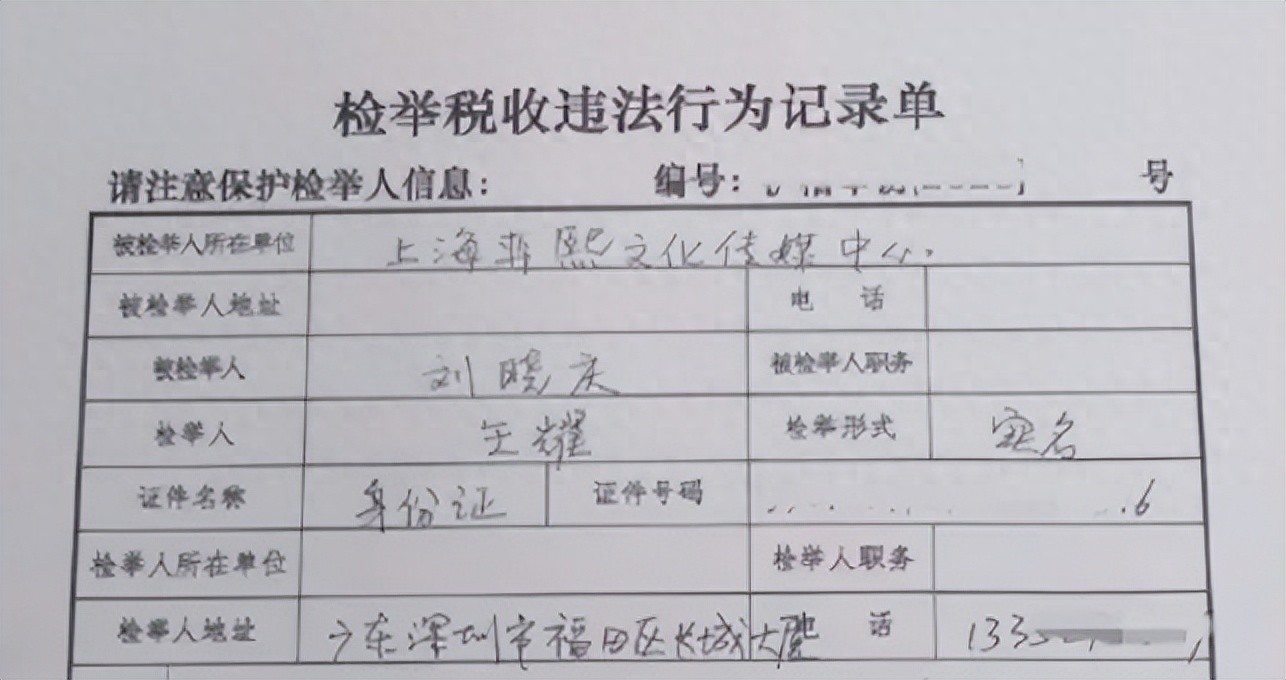 检举税收违法行为记录单
请注意保护检举人信息: 编号: 号
被检举人所在单位 上海菲熙文化传媒中心
被检举人地址 电 话
被检举人 刘晓庆 被检举人职务
检举人 王耀 检举形式 实名
证件名称 身份证 证件号码 6
检举人所在单位 检举人职务
检举人地址 广东深圳市福田区长城大厦 话 133